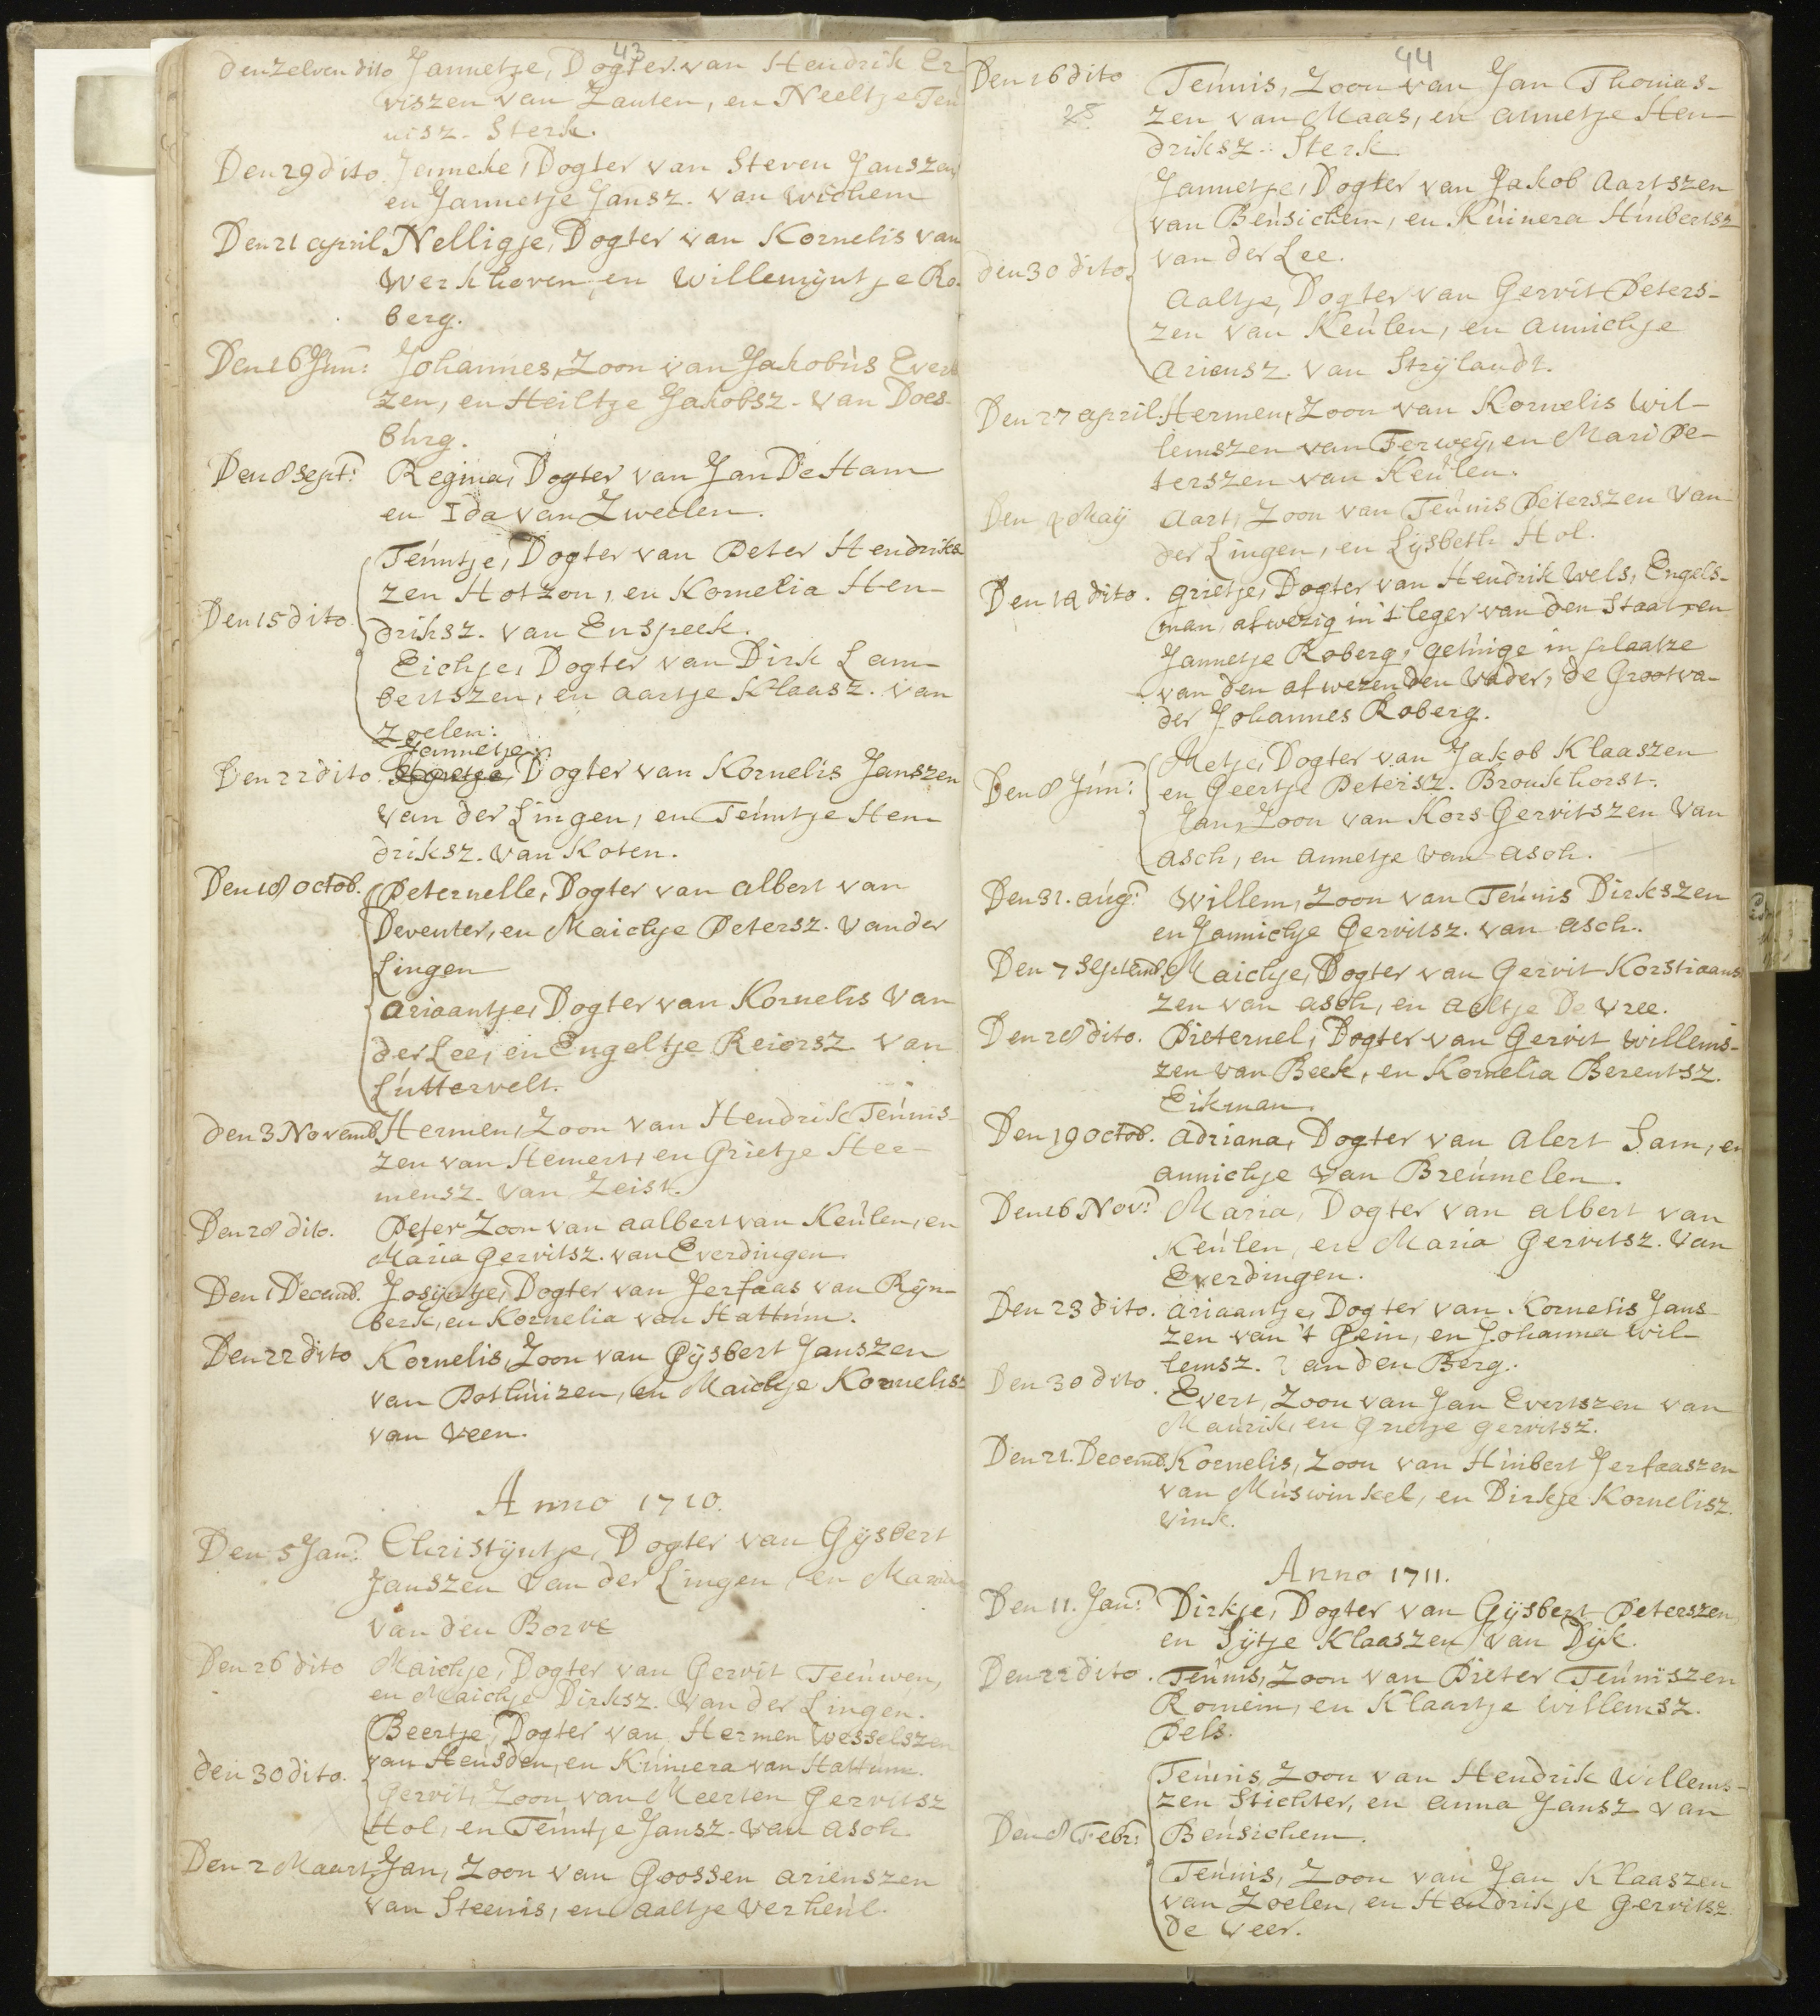 43
den zelven dito Jannetje, Dogter van Hendrik Er
viszen van Zanten, en Neeltje Teú
nisz. Sterk.
Den 29 dito. Jenneke, Dogter van Steven Janszen
en Jannetje Jansz. van Wichem
Den 21 april Nelligje, Dogter van Kornelis van
Werkhoven, en Willemÿntje Ro-
berg.
Den 16 Jun: Johannes, Zoon van Jakobús Evert
zen, en Heiltje Jakobsz. van Does-
búrg.
Den 8 Sept: Regina, Dogter van Jan De Ham
en Ida van Zweelen.
Teúntje, Dogter van Peter Hendriks
zen Hotzon, en Kornelia Hen-
Den 15 dito. driksz. van Enspeek.
Eichje, Dogter van Dirk Lam-
bertszen, en Aartje Klaasz. van
Zoelen:
Jannetje
Den 22 dito. Dogter van Kornelis Janszen
van der Lingen, en Teúntje Hen
driksz. van Koten.
Den 18 octob. Peternelle, Dogter van Albert van
Deventer, en Maichje Petersz. van der
Lingen
Ariaantje, Dogter van Kornelis van
der Lee, en Engeltje Reiersz van
Lúttervelt.
den 3 Novemb. Hermen, Zoon van Hendrik Teúnis-
zen van Hemert, en Grietje Her-
mensz. van Zeist.
Den 28 dito. Peter Zoon van Aalbert van Keúlen, en
Maria Gerritsz. van Everdingen.
Den 1 Decemb. Josÿntje, Dogter van Jerfaas van Rÿn-
berk, en Kornelia van Hattúm.
Den 22 dito Kornelis, Zoon van Gÿsbert Janszen
van Pothúizen, en Maichje Kornelisz
van Veen.
Anno 1710.
Den 5 Jan: Christÿntje, Dogter van Gÿsbert
Janszen van der Lingen, en Maria
van den Borre
Den 26 dito Maichje, Dogter van Gerrit Teeúwen,
en Maichje Dirksz. van der Lingen.
Beertje, Dogter van Hermen Wesselszen
den 30 dito. van Heusden, en Kúinera van Hattúm.
Gerrit, Zoon van Meerten Gerritsz
Hol, en Teúntje Jansz. van Asch.
Den 2 Maart Jan, Zoon van Goossen Arienszen
van Steenis, en Aaltje Verheúl.
44
Den 16 dito Teúnis, Zoon van Jan Thomas-
zen van Maas, en Annetje Hen-
driksz. Sterk
Jannetje, Dogter van Jakob Aartszen
van Beúsichem, en Kúinera Húibertsz
den 30 dito. van der Lee.
Aaltje, Dogter van Gerrit Peters-
zen van Keúlen, en Annichje
Ariensz. van Strÿlandt.
Den 27 april. Hermen, Zoon van Kornelis Wil-
lemszen van Ferweÿ, en Mari Pe-
terszen van Keúlen.
Den Maÿ Aart, Zoon van Teúnis Peterszen van
der Lingen, en Lÿsbeth Hol.
Den dito. Grietje, Dogter van Hendrik Wels, Engels-
man, afwezig in 't leger van den Staat, en
Jannetje Roberg, getúige in plaatze
van den afwezenden Vader, de Grootva-
der Johannes Roberg.
Metje, Dogter van Jakob Klaaszen
Den 8 Jún: en Geertje Petersz. Bronkhorst.
Jan, Zoon van Kors Gerritszen van
Asch, en Annetje van Asch.
Den 31. aúg: Willem, Zoon van Teúnis Dirkszen
en Jannichje Gerritsz. van Asch.
Den 7 Septemb. Maichje, Dogter van Gerrit Korstiaans
zen van Asch, en Aeltje De Vree.
Den 28 dito. Pieternel, Dogter van Gerrit Willems-
zen van Beek, en Kornelia Berentsz.
Eikman.
Den 19 octob. Adriana, Dogter van Alert Sam, en
Annichje van Breúmelen.
Den 16 Nov: Maria, Dogter van Albert van
Keúlen, en Maria Gerritsz. van
Everdingen.
Den 23 dito. Ariaantje, Dogter van Kornelis Jans
zen van 't Gein, en Johanna Wil-
lemsz. van den Berg.
Den 30 dito. Evert, Zoon van Jan Evertszen van
Maúrik, en Grietje Gerritsz.
Den 21. Decemb. Kornelis, Zoon van Húibert Jerfaaszen
van Múswinkel, en Dirkje Kornelisz.
Vink.
Anno 1711.
Den 11. Jan: Dirkje, Dogter van Gÿsbert Peterszen,
en Sÿtje Klaaszen van Dÿk.
Den 22 dito. Teúnis, Zoon van Pieter Teúniszen
Romein, en Klaartje Willemsz.
Pels.
Teúnis, Zoon van Hendrik Willems-
zen Stichter, en Anna Jansz van
Den 8 Febr: Beúsichem.
Teúnis, Zoon van Jan Klaaszen
van Zoelen, en Hendrikje Gerritsz.
de Weer.